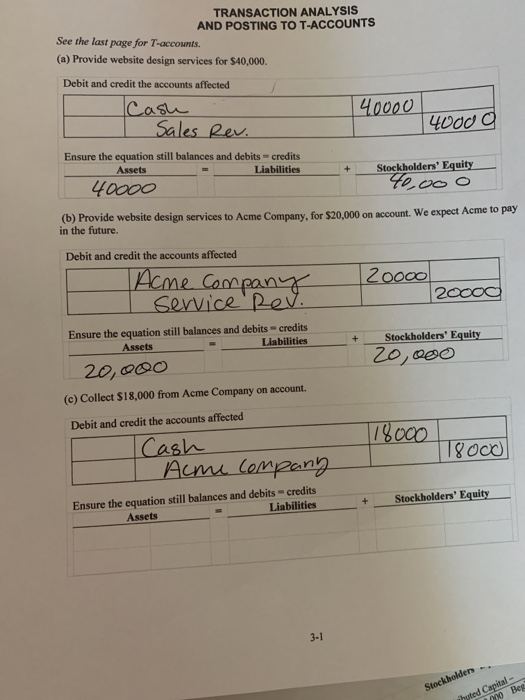 TRANSACTION ANALYSIS
AND POSTING TO T-ACCOUNTS
See the last page for T-accounts.
(a) Provide website design services for $40,000.
Debit and credit the accounts affected
Cash 40000
Sales Rev. 40000
Ensure the equation still balances and debits = credits
Assets = Liabilities + Stockholders' Equity
40000 40,000
(b) Provide website design services to Acme Company, for $20,000 on account. We expect Acme to pay
in the future.
Debit and credit the accounts affected
Acme Company 20000
Service Rev. 20000
Ensure the equation still balances and debits = credits
Assets = Liabilities + Stockholders' Equity
20,000 20,000
(c) Collect $18,000 from Acme Company on account.
Debit and credit the accounts affected
Cash 18000
Acme Company 18000
Ensure the equation still balances and debits = credits
Assets = Liabilities + Stockholders' Equity
3-1
Stockholders
Capital -